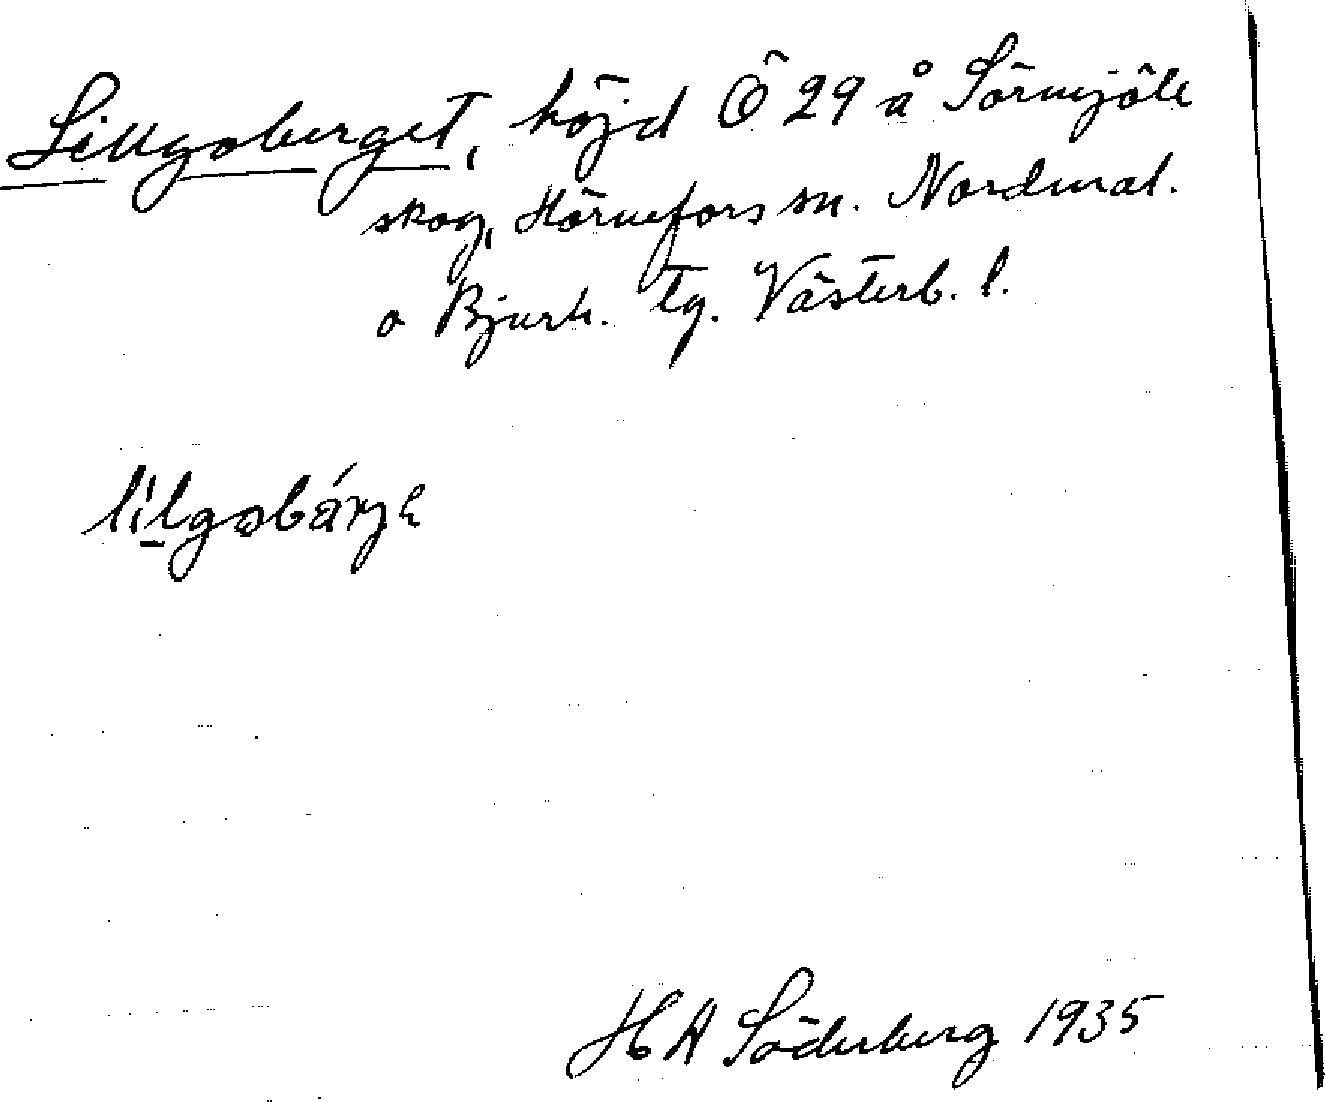 Lillgoberget, höjd Ö 29 å Sörmjöle
skog, Hörnefors sn. Nordmal.
o Bjurh. tg. Västerb. l.
lilgobärje
H A Söderberg 1935